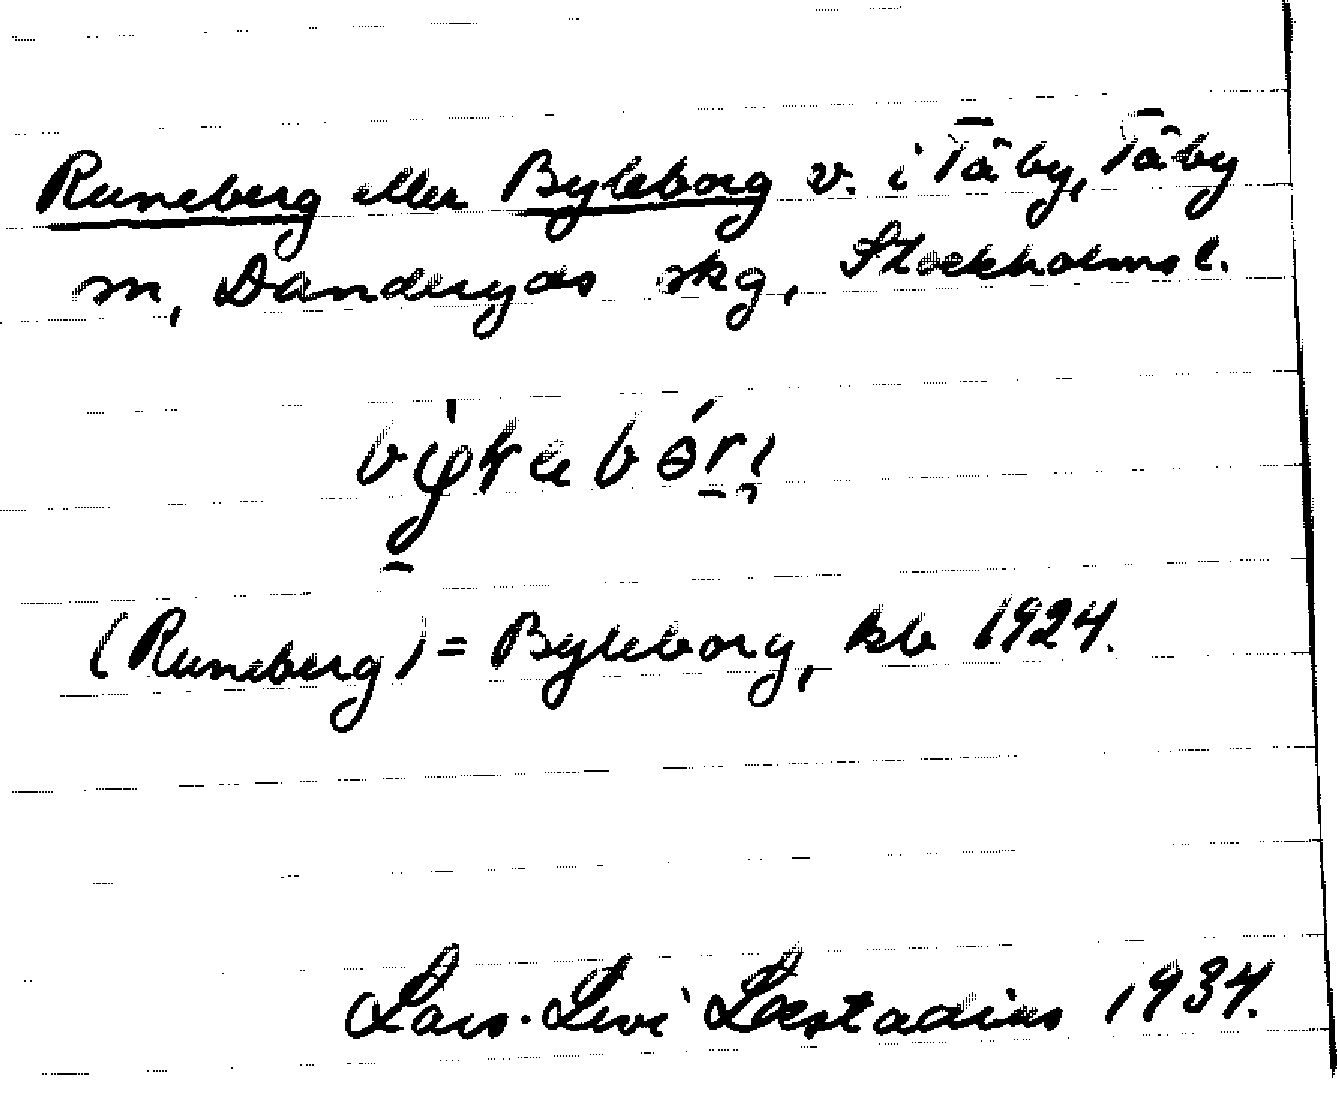 Runeberg eller Byleborg v. i Täby, Täby
sn, Danderyds skg, Stockholms l.
(Runeberg) = Byleborg, kb 1924.
Lars-Levi Læstadius 1934.